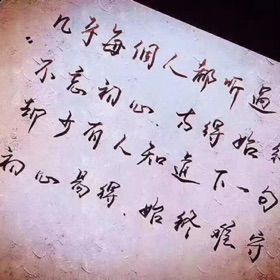 几乎每個人都听過
"不忘初心.方得始終
却少有人知道下一句
初心易得.始終難守